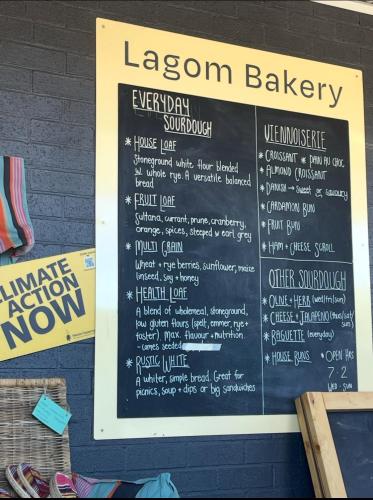 Lagom Bakery
EVERYDAY
SOURDOUGH
* HOUSE LOAF
Stoneground white flour blended
w. whole rye. A versatile balanced
bread
* FRUIT LOAF
Sultana, currant, prune, cranberry,
orange, spices, steeped w earl grey
* MULTI GRAIN
Wheat + rye berries, sunflower, maize
linseed, soy + honey
* HEALTH LOAF
A blend of wholemeal, stoneground,
low gluten flours (spelt, emmer, rye +
faster). Max. flavour + nutrition
- comes seeded
* RUSTIC WHITE
A whiter, simple bread. Great for
picnics, soup + dips or big sandwiches
VIENNOISERIE
* CROISSANT * PAIN AU CHOC
* ALMOND CROISSANT
* DANISH → sweet or savoury
* CARDAMON BUN
* FRUIT BUN
* HAM + CHEESE SCROLL
OTHER SOURDOUGH
* OLIVE + HERB (wed/fri/sun)
* CHEESE + JALAPEÑO (thur/sat/
sun)
* BAGUETTE (everyday)
* HOUSE BUNS
• OPEN HRS
7-2
WED - SUN
CLIMATE
ACTION
NOW